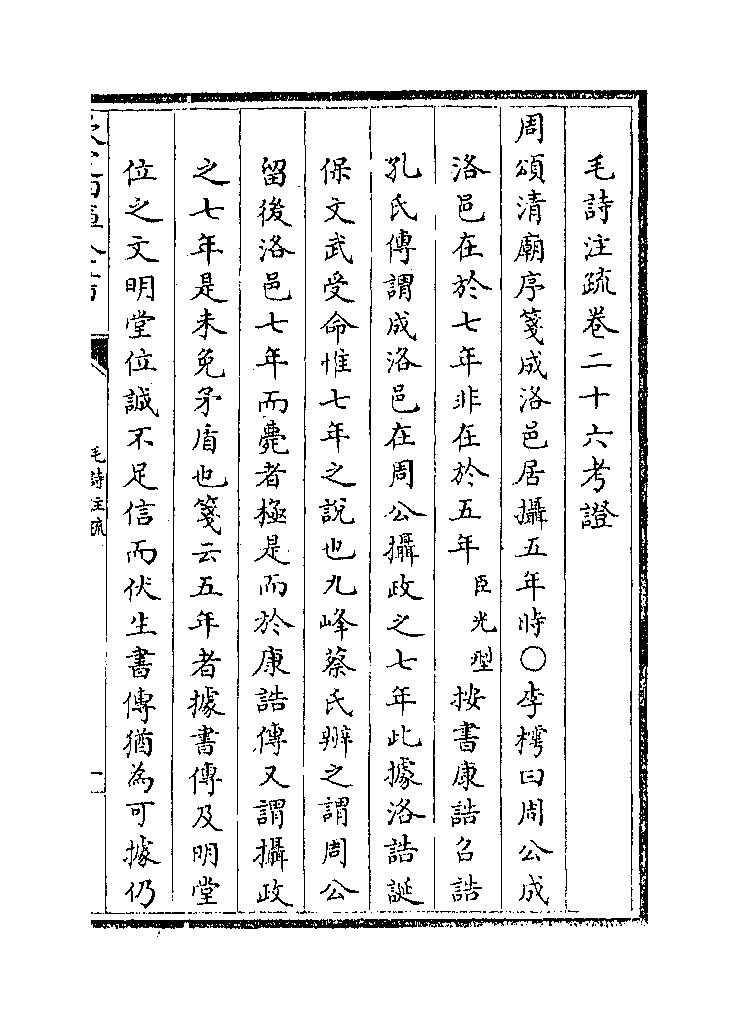 毛詩注疏卷二十六考證
周頌清廟序箋成洛邑居攝五年時〇李樗曰周公成
洛邑在於七年非在於五年臣光型按書康誥召誥
孔氏傳謂成洛邑在周公攝政之七年此據洛誥誕
保文武受命惟七年之說也九峰蔡氏辨之謂周公
留後洛邑七年而薨者極是而於康誥傳又謂攝政
之七年是未免矛盾也箋云五年者據書傳及明堂
位之文明堂位誠不足信而伏生書傳猶為可據仍
毛詩注疏
一